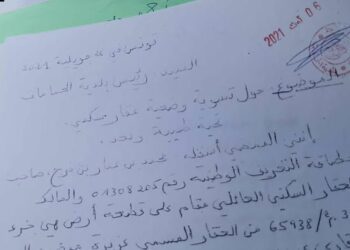 06 أوت 2021
تونس في 26 جويلية 2021
السيد رئيس بلدية الحمامات
الموضوع حول تسوية وضعية عقار سكني.
تحية طيبة وبعد،
إنني الممضي أسفله محمد بن عمار بن فرج صاحب
بطاقة التعريف الوطنية رقم 01308205 والمالك
العقار السكني العائلي مقام على قطعة أرض هي جزء
65938 من العقار المسمى